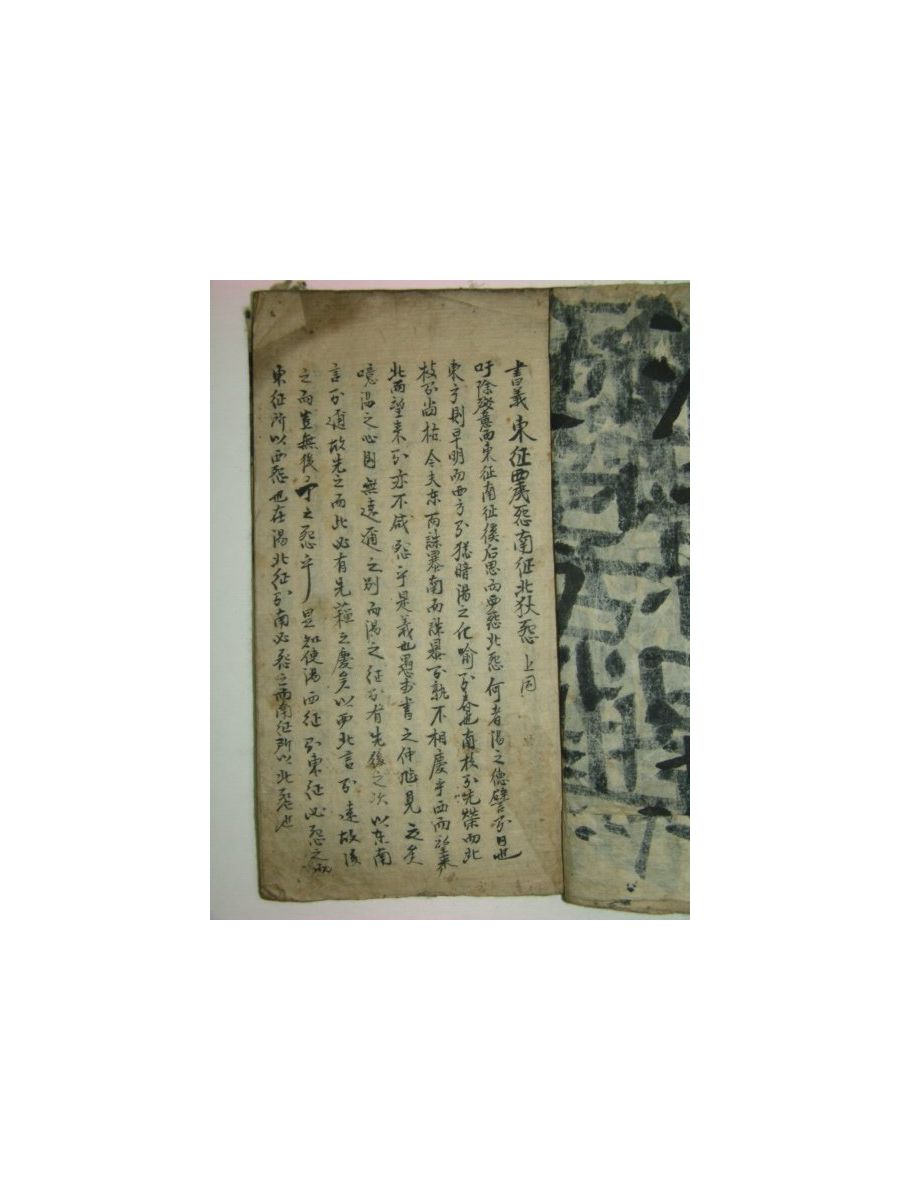 書義 東征西夷怨南征北狄怨 上同
吁除 而東征南征徯后思而西怨北怨何者湯之德譬則日也
東方則早明而西方則猶暗湯之化喻則春也南枝則先榮而北
枝則尚枯今夫東而誅暴南而誅暴則孰不相慶乎西而望來
北而望來則亦不咸怨乎是義也愚於書之仲虺見之矣
噫湯之心固無遠邇之别而湯之征則有先後之次以東南
言則邇故先之而此必有先 之慶矣以西北言則遠故後
之而豈無後予之怨乎 是知使湯西征則東征必怨之
東征所以西怨也在湯北征則南必怨之而南征所以北怨也